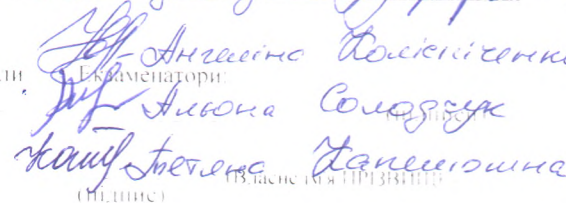 Ангеліна Колісніченк
Екзаменатори:
Альона Солодчук
Тетяна Капелюшна
(Власне ім'я ПРІЗВИЩЕ)
(підпис)